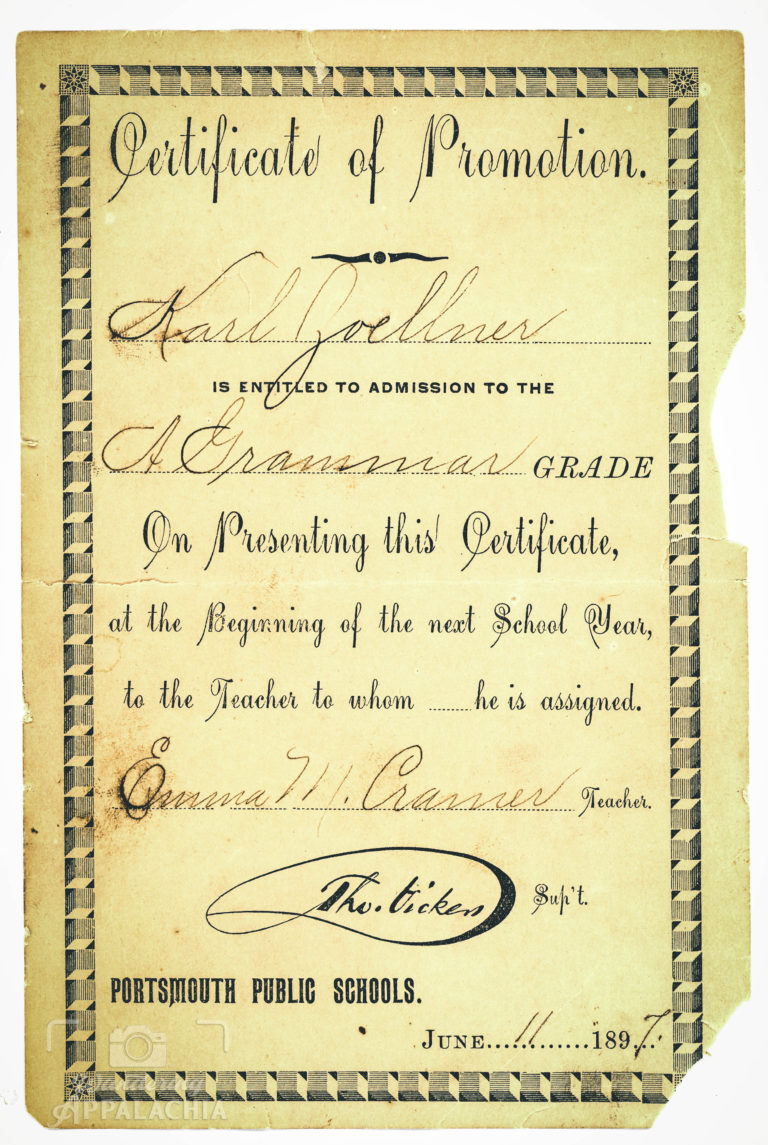 Certificate of Promotion.
Karl Zoellner
IS ENTITLED TO ADMISSION TO THE
A Grammar GRADE
On Presenting this Certificate,
at the Beginning of the next School Year,
to the Teacher to whom ....... he is assigned.
Emma M. Cramer Teacher.
Tho. Vickers Sup't.
PORTSMOUTH PUBLIC SCHOOLS.
JUNE...11...........1897.
APPALACHIA